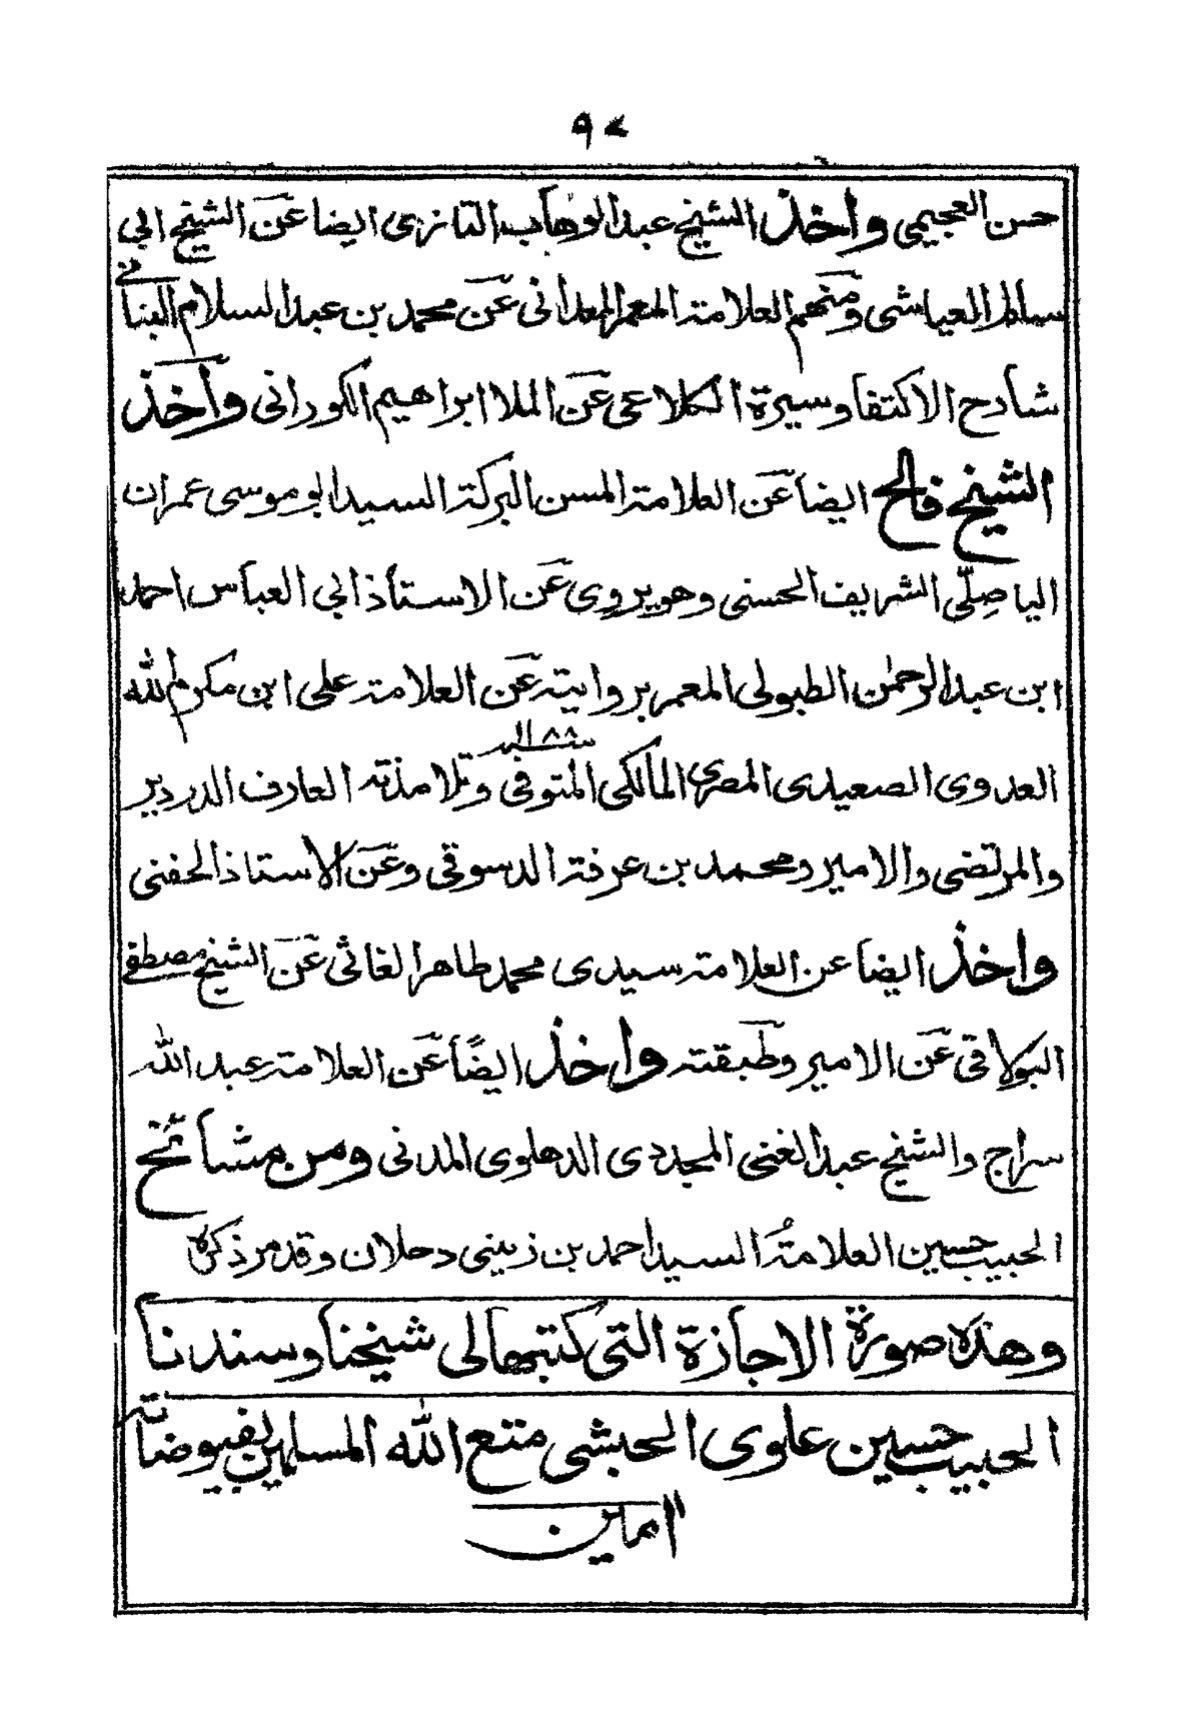 ٩٧
حسن العجيمي واخذ الشيخ عبد الوهاب التازي ايضا عن الشيخ ابي
سالم العياشي ومنهم العلامة المعمر المعداني عن محمد بن عبد السلام البناني
شارح الاكتفا وسيرة الكلاعي عن الملا ابراهيم الكوراني واخذ
الشيخ فالح ايضا عن العلامة المسن البركة السيد ابو موسى عمران
الياصلّي الشريف الحسني وهو يروي عن الاستاذ ابي العباس احمد
ابن عبد الرحمن الطبولي المعمر بروايته عن العلامة علي ابن مكرم الله
العدوي الصعيدي المصري المالكي المتوفى وتلامذته العارف الدردير
والمرتضى والامير ومحمد بن عرفة الدسوقي وعن الاستاذ الحفني
واخذ ايضا عن العلامة سيدي محمد طاهر الغاتي عن الشيخ مصطفى
البولاقي عن الامير وطبقته واخذ ايضًا عن العلامة عبد الله
سراج والشيخ عبد الغني المجددي الدهلوي المدني ومن مشائخ
الحبيب حسين العلامةُ السيد احمد بن زيني دحلان وقد مر ذكره
وهذه صورة الاجازة التي كتبها لي شيخنا وسندنا
الحبيب حسين علوي الحبشي متع الله المسلمين بفيوضاته
امين